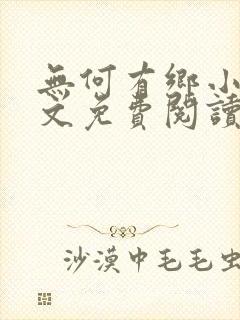 無何有鄉小
文免費閱讀
沙漠中毛毛虫